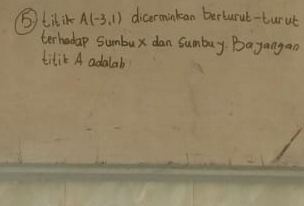 5) titik A(-3,1) dicerminkan berturut-turut
terhadap Sumbu x dan Sumbu y. Bayangan
titik A adalah